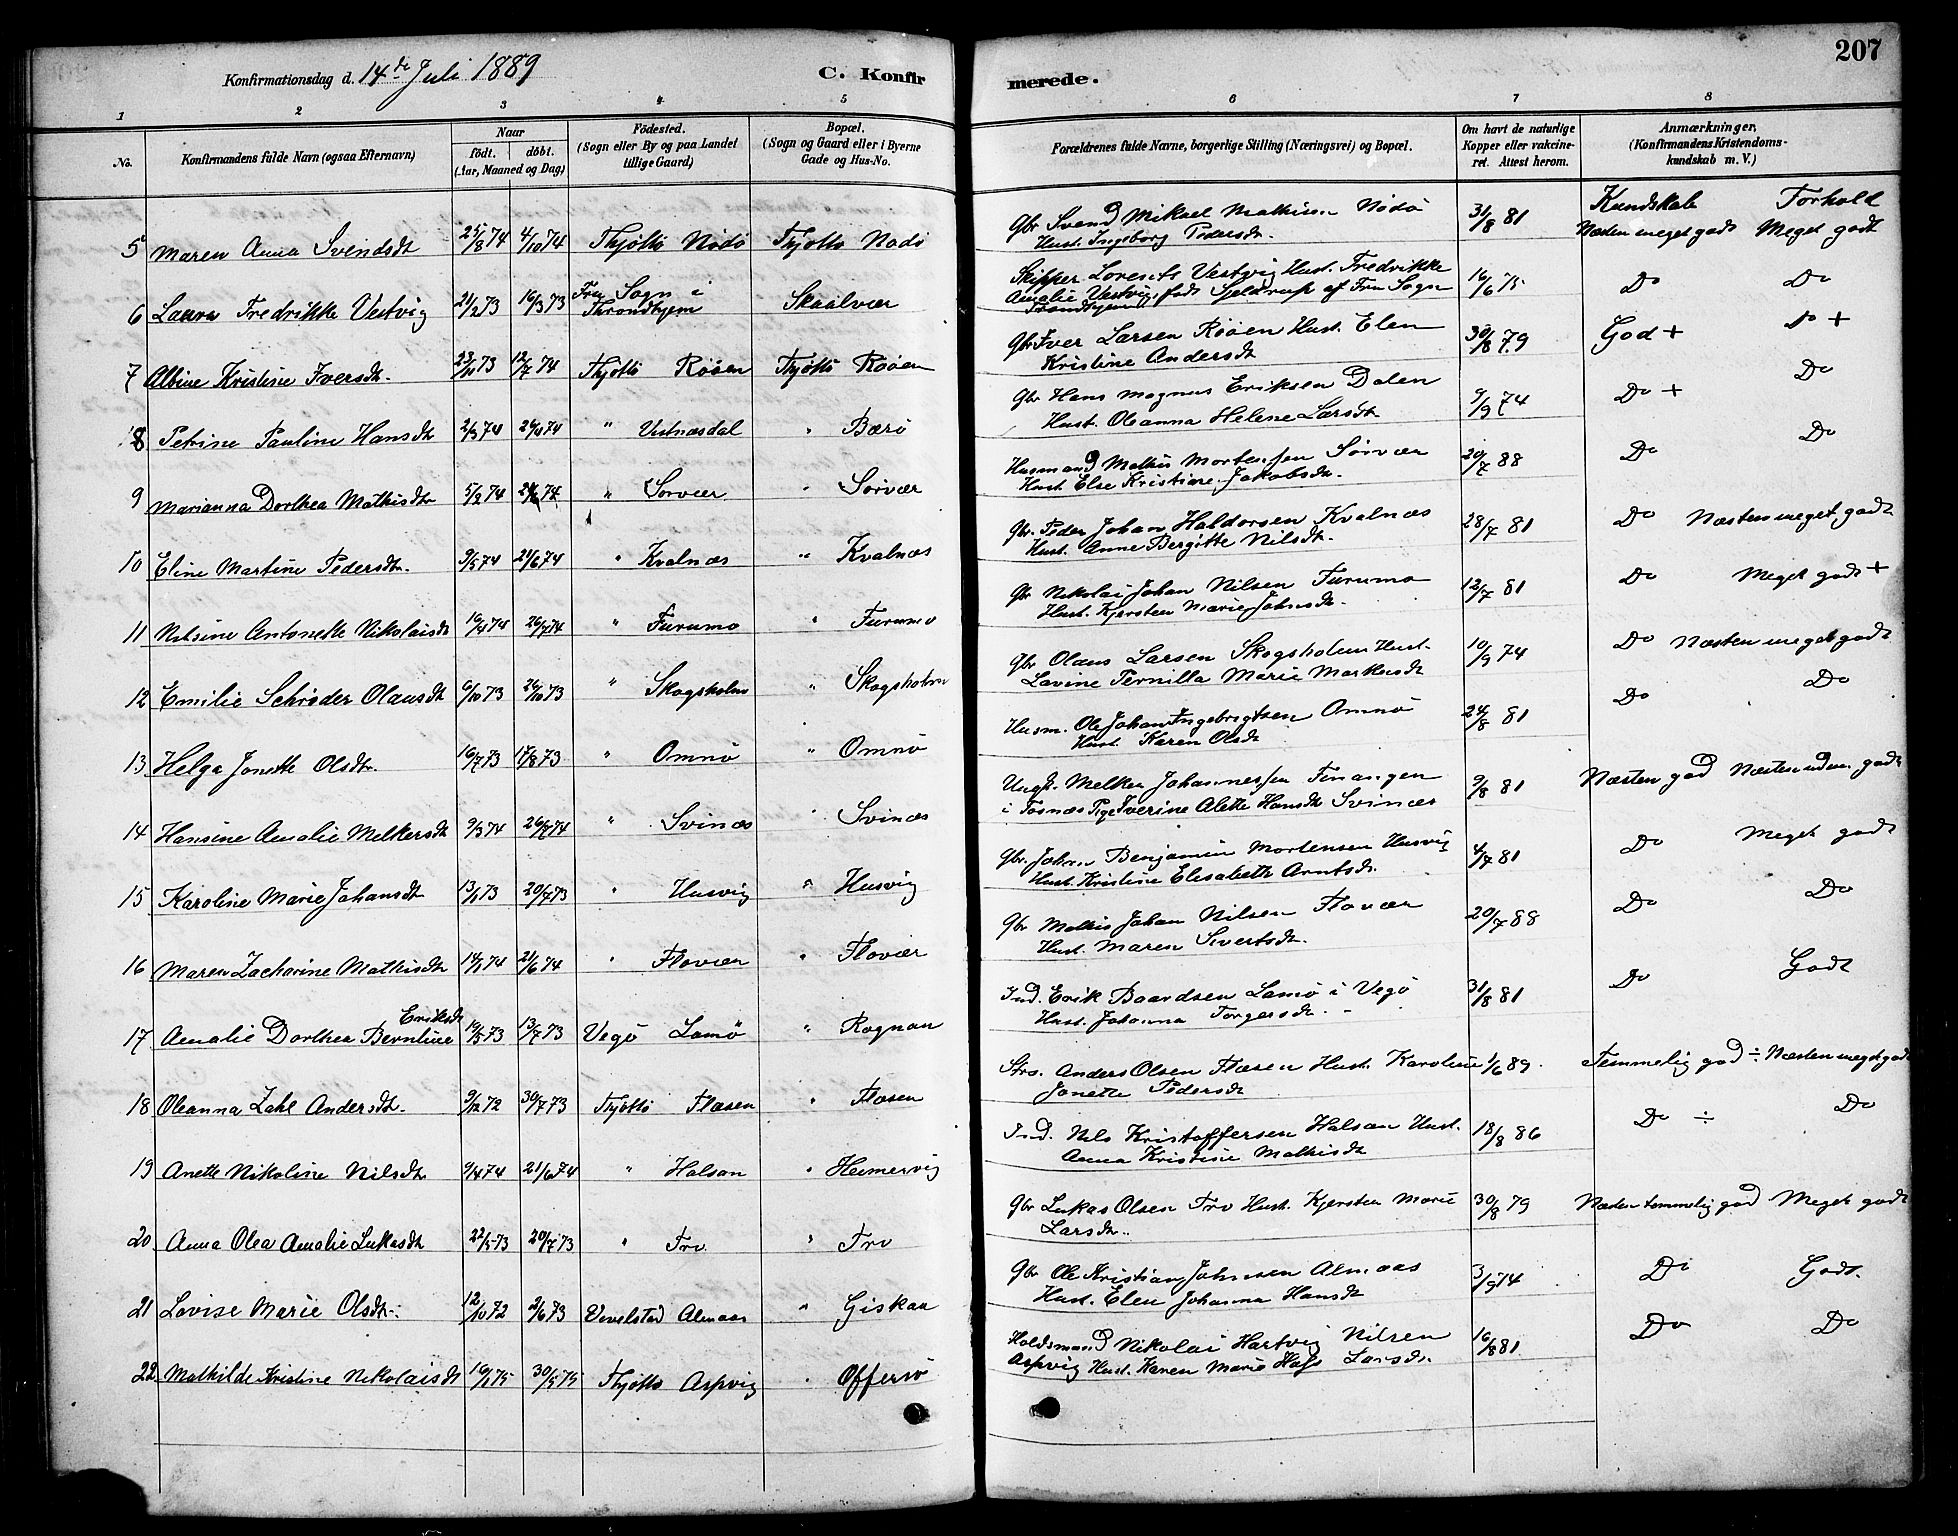 207
Konfirmationsdag d. 14de Juli 1889
C. Konfirmerede.
1 2 3 4 5 6 7 8
No. Konfirmandens fulde Navn (ogsaa Efternavn) Naar födt. döbt. (Aar, Maaned og Dag) Födested. (Sogn eller By og paa Landet tillige Gaard) Bopæl. (Sogn og Gaard eller i Byerne Gade og Hus-No. Forældrenes fulde Navne, borgerlige Stilling (Næringsvei) og Bopæl. Om havt de naturlige Kopper eller vakcineret. Attest herom. Anmærkninger. (Konfirmandens Kristendomskundskab m. V.)
Kundskab Forhold
5 Maren Anna Svendsdt 25/8 74 4/10 74 Thjøttø Nødø Thjøttø Nødø Gbr Svend Mikael Mathisen Nødø 31/8 81 Næsten meget godt Meget godt
Hust. Ingeborg Pedersdt.
6 Laura Fredrikke Vestvig 21/2 73 16/3 73 Fru Sogn i Throndhjem Skaalvær Skipper Lorents Vestvig Hust. Fredrikke 16/6 75 Do Do
Amalie Vestvig, født Sjeldrup af Fru Sogn
Trondhjem
7 Albine Kristine Iversdt. 23/11 73 12/7 74 Thjøttø Røøen Thjøttø Røøen Gbr Iver Larsen Røøen Hust. Elen 30/8 79 God + Do +
Kristine Andersdt
8 Petrine Pauline Hansdt 2/3 74 26/4 74 " Vestnæsdal " Bærø Gbr Hans Magnus Eriksen Dalen 9/9 74 Do + Do
Hust. Oleanna Helene Larsdt
9 Marianna Dorthea Mathisdt 5/2 74 74 " Sørvær " Sørvær Husmand Mathis Mortensen Sørvær 20/7 88 Do Do
Hust. Else Kristine Jakobsdt.
10 Eline Martine Pedersdt. 9/5 74 21/6 74 " Kvalnæs " Kvalnæs Gbr. Peder Johan Haldorsen Kvalnæs 28/7 81 Do Næsten meget godt
Hust. Anne Bergitte Nilsdt.
11 Nilsine Antonette Nikolaisdt 16/4 74 26/7 74 " Furumo " Furumo Gbr Nikolai Johan Nilsen Furumo 12/7 81 Do Meget godt +
Hust. Kjersten Marie Johnsdt.
12 Emilie Schrøder Olausdt 6/10 73 26/10 73 " Skogsholm " Skogsholm Gbr Olaus Larsen Skogsholm Hust. 10/9 74 Do Næsten meget godt
Lavine Pernilla Marie Markusdt
13 Helga Jonette Olsdt. 16/7 73 17/8 73 " Omnø " Omnø Husm. Ole Johan Ingebrigtsen Omnø 24/8 81 Do Do
Hust. Karen Olsdt
14 Hansine Amalie Melkersdt 9/3 74 26/7 74 " Svinæs " Svinæs Ungk. Melker Johannessen Finangen 9/8 81 Næsten god Næsten uden godt
i Fosnæs Pige Iverine Alette Hansdt Svinæs
15 Karoline Marie Johansdt 13/1 73 20/7 73 " Husvig " Husvig Gbr. Johan Benjamin Mortensen Husvig 4/7 81 Do Meget godt
Hust. Kristine Elisabeth Arntsdt.
16 Maren Zacharine Mathisdt 14/1 74 21/6 74 " Flovær " Flovær Gbr Mathis Johan Nilsen Flovær 20/7 88 Do Do
Hust. Maren Sivertsdt.
17 Amalie Dorthea Berntine Eriksdt 19/5 73 13/7 73 Vegø Lamø " Rognan Ind. Erik Baardsen Lamø i Vegø 31/8 81 Do Godt
Hust. Johanna Torgersdt. -
18 Oleanna Zahl Andersdt. 9/12 72 30/7 73 Thjøttø Flæsen " Flæsen Str. Anders Olsen Flæsen Hust. Karoline 1/6 89. Temmelig god ÷ Næsten meget godt
Jonette Pedersdt
19 Anette Nikoline Nilsdt 9/4 74 21/6 74 " Halsan " Hemervig Ind. Nils Kristoffersen Halsan Hust. 18/8 86 Do ÷ Do
Anna Kristine Mathisdt
20 Anna Olea Amalie Lukasdt 22/5 73 20/7 73 " Tro " Tro Gbr Lukas Olsen Tro Hust. Kjersten Marie 30/8 79 Næsten temmelig god Meget godt
Larsdt.
21 Lovise Marie Olsdt. 12/10 72 2/6 73 Vevelstad Almaas " Giskaa Gbr Ole Kristian Johnsen Almaas 3/9 74 Do Godt.
Hust. Elen Johanna Hansdt
22 Mathilde Kristine Nikolaisdt 16/1 75 30/5 75 Thjøttø Aspvig " Offersø Holdsmand Nikolai Hartvig Nilsen 16/8 81 Do Do
Aspvig Hust. Karen Marie Larsdt.